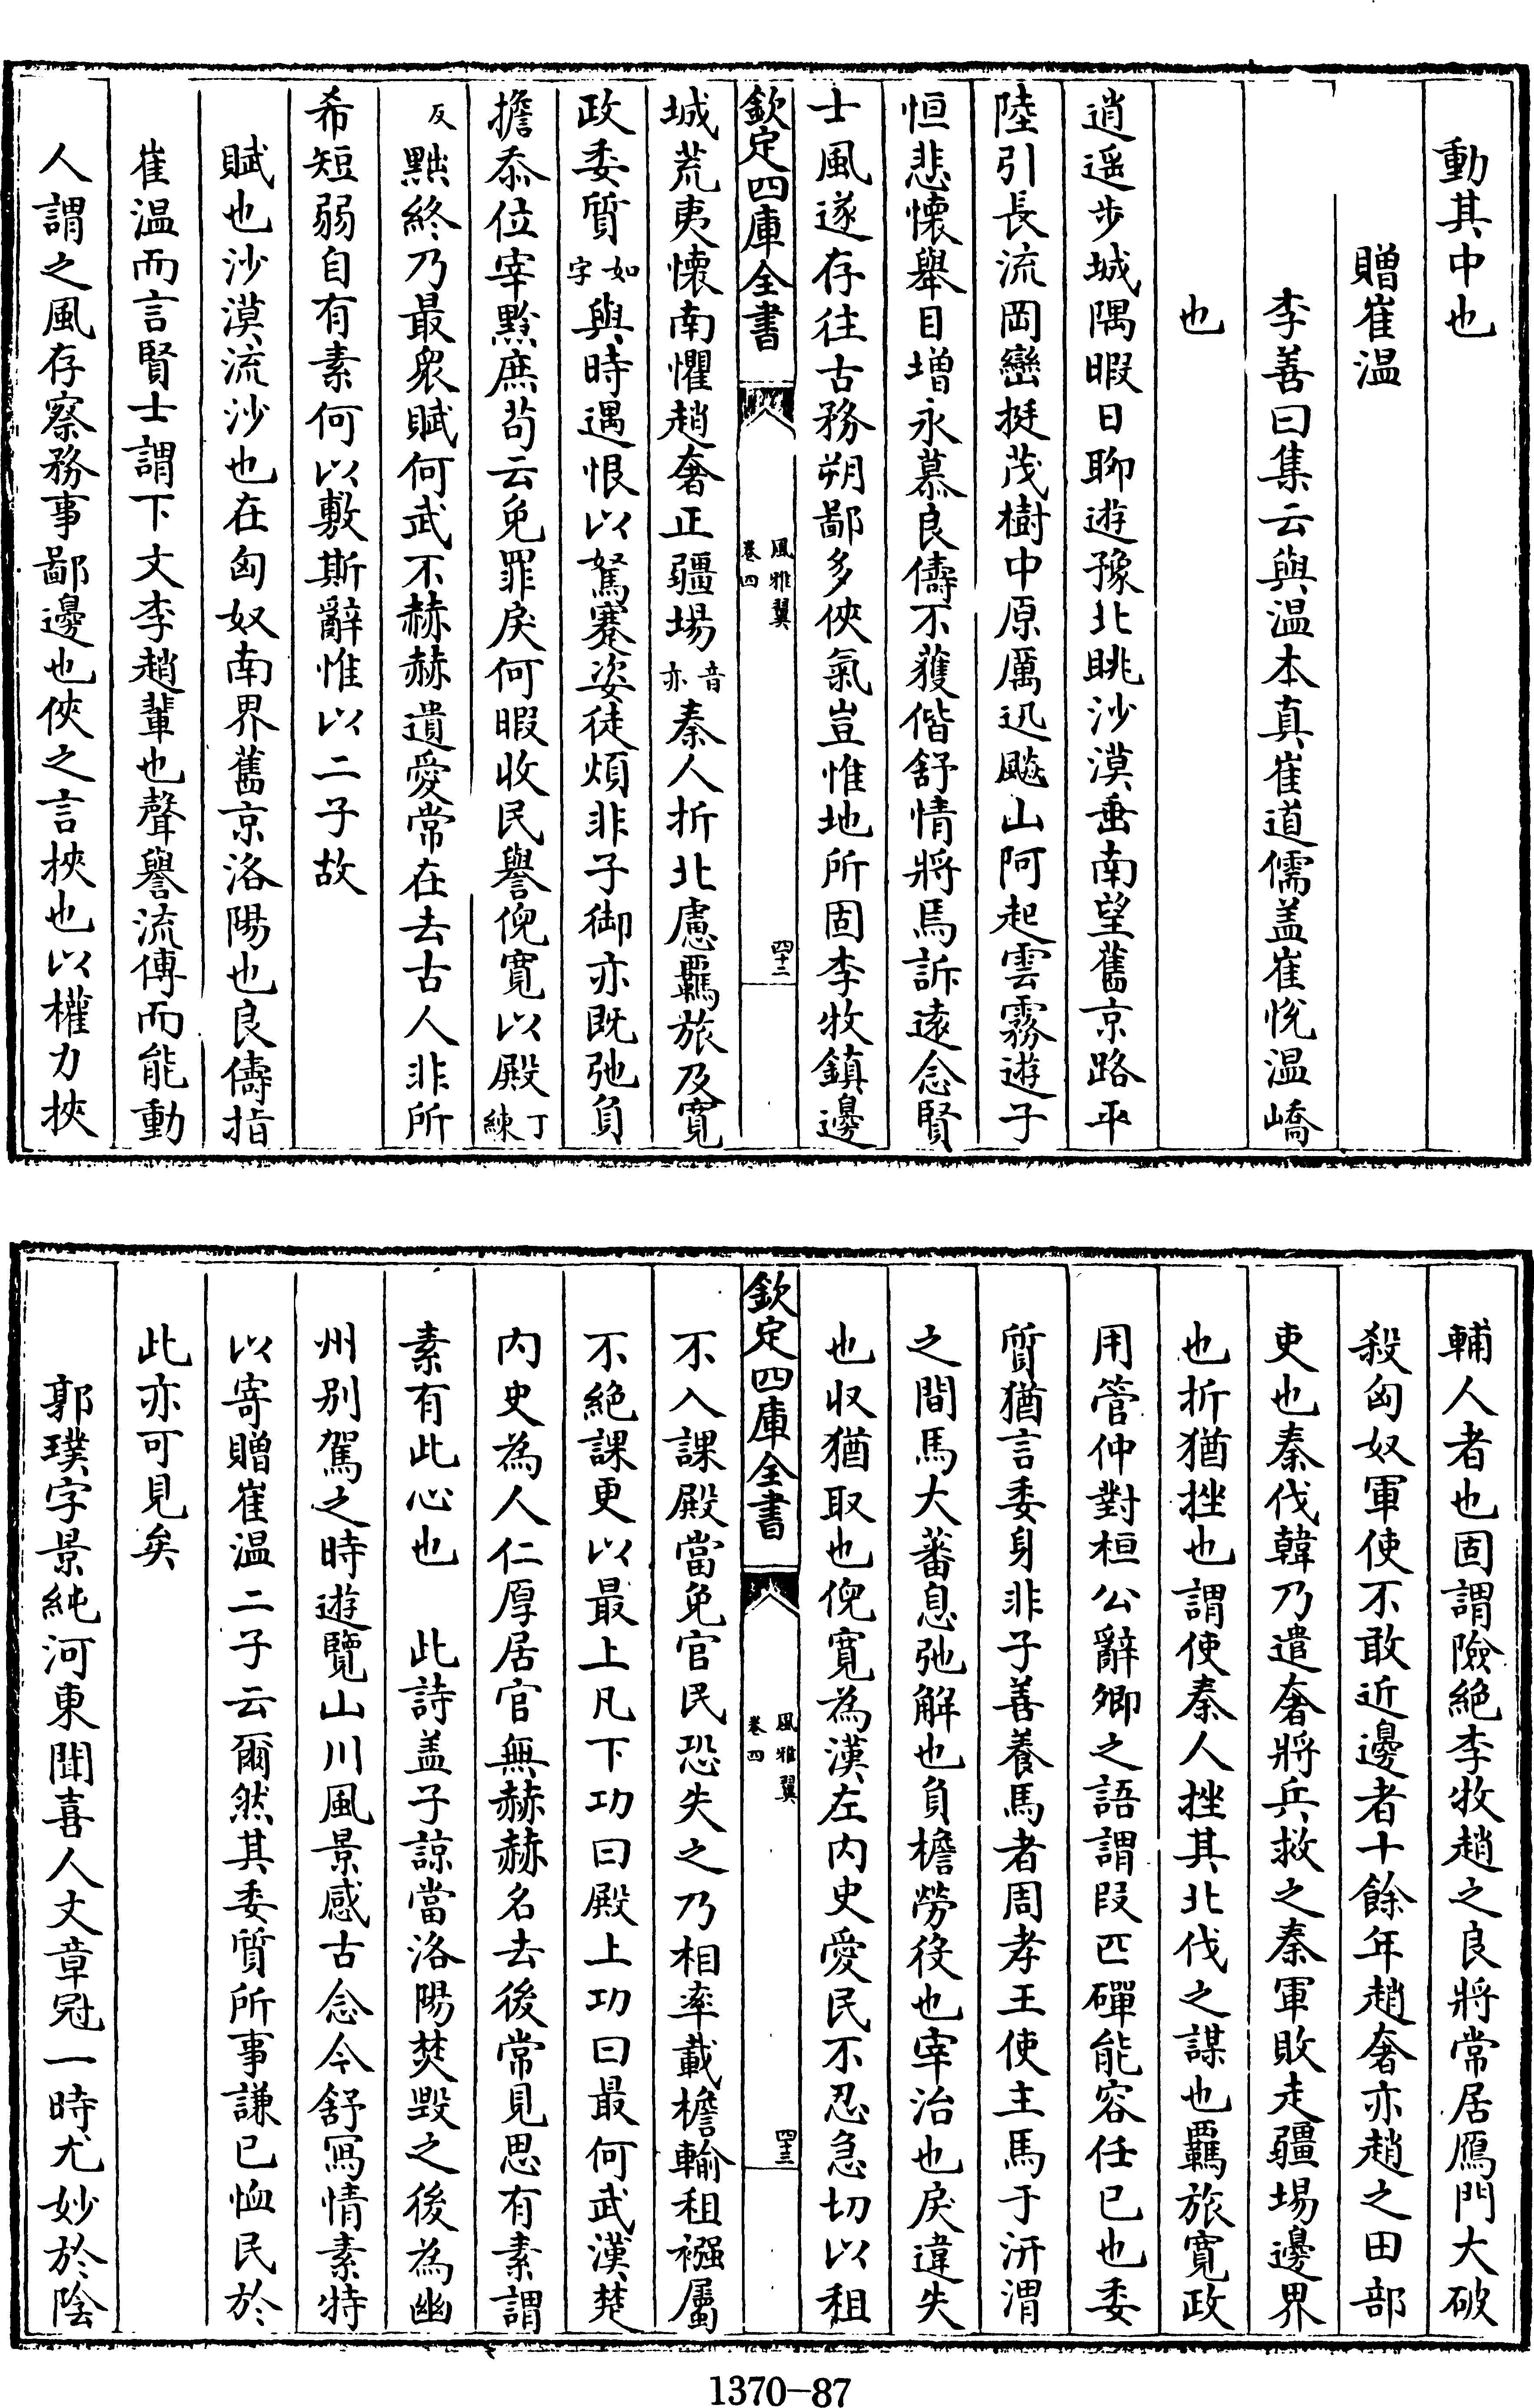 動其中也
贈崔温
李善曰集云與温本真崔道儒盖崔悦温嶠
也
逍遥步城隅暇日聊遊豫北眺沙漠垂南望舊京路平
陸引長流岡巒挺茂樹中原厲迅飈山阿起雲霧遊子
恒悲懐舉目增永慕良儔不獲偕舒情將焉訴遠念賢
士風遂存往古務朔鄙多俠氣豈惟地所固李牧鎮邊
欽定四庫全書
風雅翼
卷四
四十二
城荒夷懐南懼趙奢正疆埸音亦秦人折北慮羈旅及寛
政委質如字與時遇恨以駑蹇姿徒煩非子御亦既弛負
擔忝位宰黔庶苟云免罪戾何暇收民譽倪寛以殿丁練
反黜終乃最衆賦何武不赫赫遺愛常在去古人非所
希短弱自有素何以敷斯辭惟以二子故
賦也沙漠流沙也在匈奴南界舊京洛陽也良儔指
崔温而言賢士謂下文李趙輩也聲譽流傳而能動
人謂之風存察務事鄙邊也俠之言挾也以權力挾
輔人者也固謂險絶李牧趙之良將常居鴈門大破
殺匈奴軍使不敢近邊者十餘年趙奢亦趙之田部
吏也秦伐韓乃遣奢將兵救之秦軍敗走疆埸邊界
也折猶挫也謂使秦人挫其北伐之謀也羈旅寛政
用管仲對桓公辭卿之語謂叚匹磾能容任已也委
質猶言委身非子善養馬者周孝王使主馬于汧渭
之間馬大蕃息弛解也負檐勞役也宰治也戾違失
也收猶取也倪寛為漢左内史愛民不忍急切以租
欽定四庫全書
風雅翼
卷四
四十三
不入課殿當免官民恐失之乃相率載檐輸租襁屬
不絶課更以最上凡下功曰殿上功曰最何武漢楚
内史為人仁厚居官無赫赫名去後常見思有素謂
素有此心也　此詩盖子諒當洛陽焚毁之後為幽
州别駕之時遊覽山川風景感古念今舒寫情素特
以寄贈崔温二子云爾然其委質所事謙已恤民於
此亦可見矣
郭璞字景純河東聞喜人文章冠一時尤妙於陰
1370-87